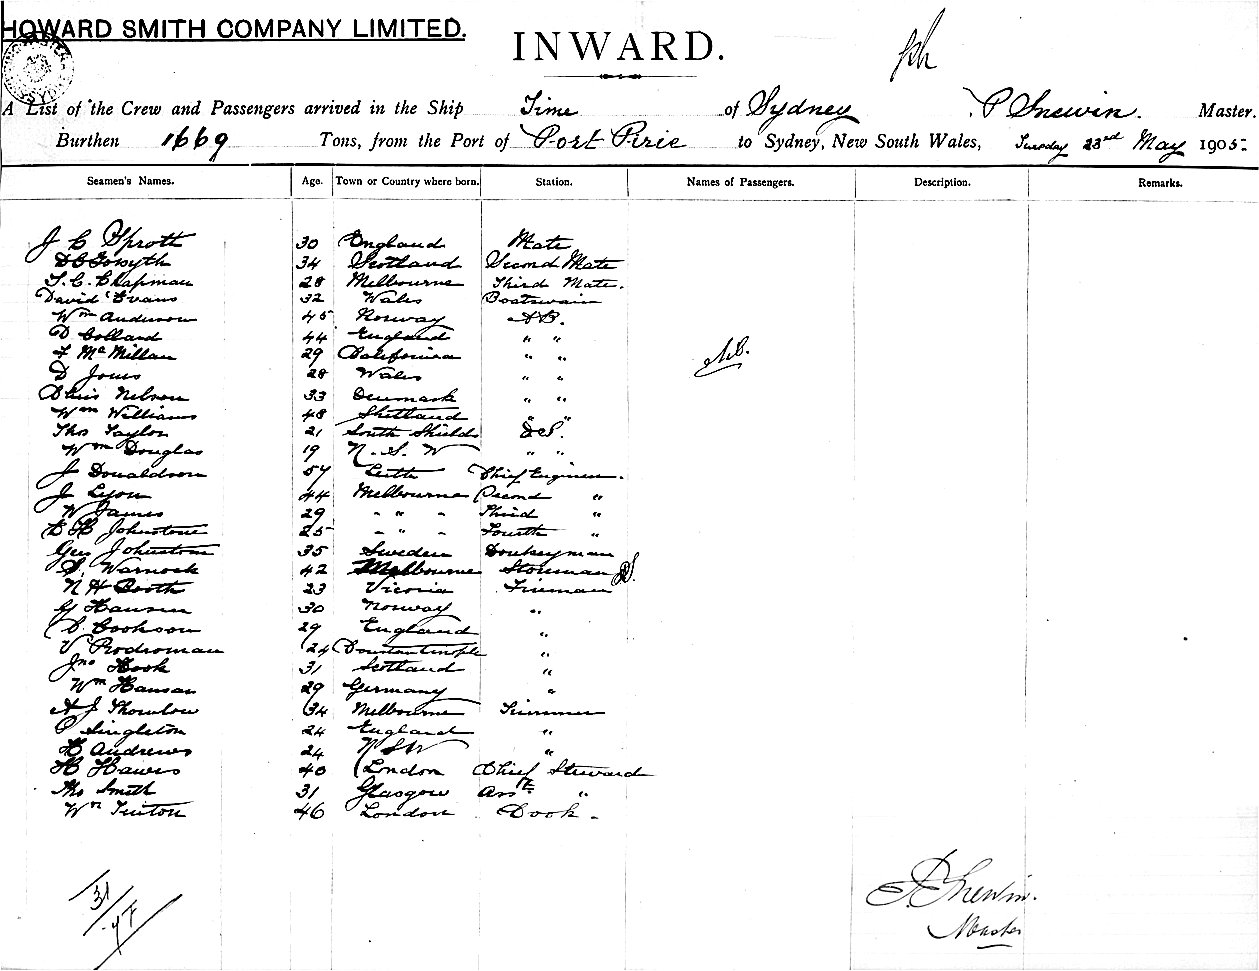 HOWARD SMITH COMPANY LIMITED.
INWARD.
A List of the Crew and Passengers arrived in the Ship Time of Sydney P Snewin. Master.
Burthen 1669 Tons, from the Port of Port Pirie to Sydney, New South Wales, Tuesday 23rd May 1905.
Seamen's Names. Age. Town or Country where born. Station. Names of Passengers. Description. Remarks.
J C Sprott 30 England Mate
D C Forsyth 34 Scotland Second Mate
T. C. Chapman 28 Melbourne Third Mate.
David Evans 32 Wales Boatswain
Wm Anderson 45 Norway A.B.
D Collard 44 England " "
F McMillan 29 California " "
D Jones 28 Wales " "
Nelson 33 Denmark " "
Wm Williams 48 Shetland " "
Thos Taylor 21 South Shields
Wm Douglas 19 N. S. W " "
J Donaldson 57 Leith Chief Engineer.
J Lyon 44 Melbourne Second "
W James 29 " " " Third "
C H Johnstone 25 " " " Fourth "
Gus Johnstom 35 Sweden Donkeyman
S. Warnock 42 Melbourne Storeman
N H Booth 23 Vicoria Fireman
G Hansen 30 Norway "
C. Cookson 29 England "
V Rodroman 24 Constantinople "
Jno Hook 31 Scotland "
Wm Hansan 29 Germany "
A J Thowlow 34 Melbourne Trimmer
P Singleton 24 England "
H Andrews 24 N S W "
H Hawes 40 London Chief Steward
Thos Smith 31 Glasgow Asst "
Wm Tinton 46 London Cook.
31
P Snewin.
Master